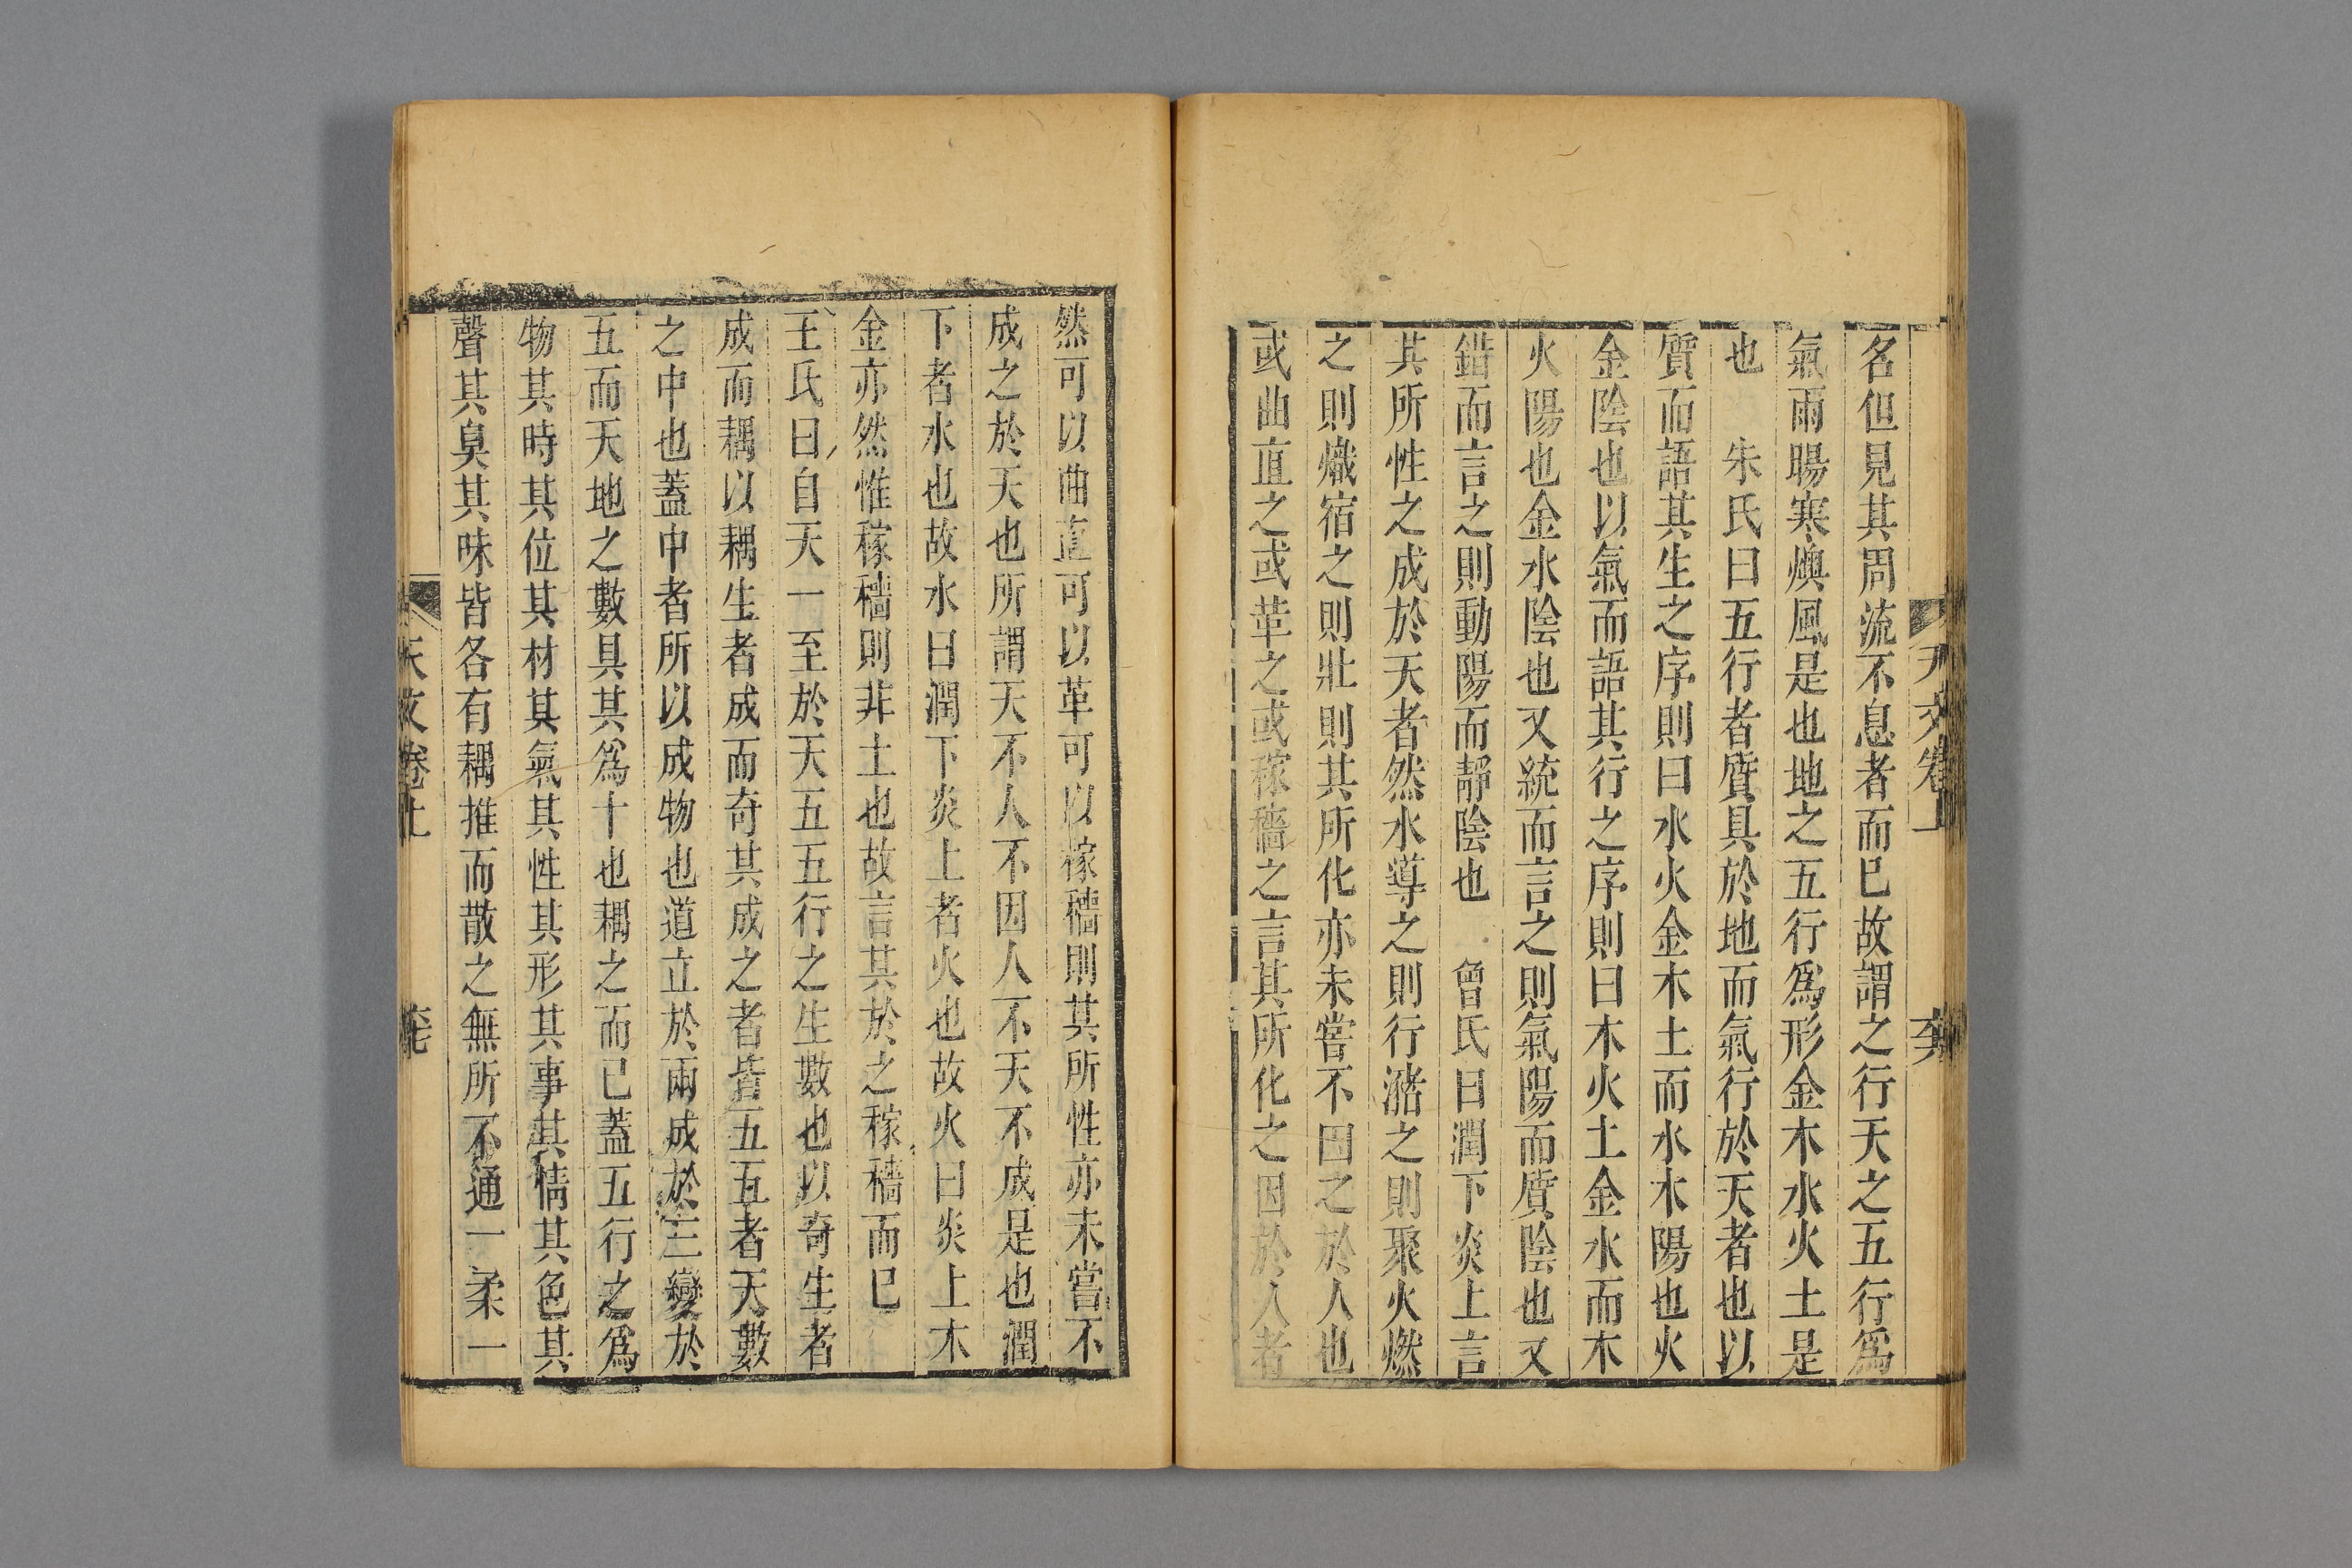 天文卷上
名但見其周流不息者而已故謂之行天之五行爲
氣雨暘寒燠風是也地之五行爲形金木水火土是
也　朱氏曰五行者質具於地而氣行於天者也以
質而語其生之序則曰水火金木土而水木陽也火
金陰也以氣而語其行之序則曰木火土金水而木
火陽也金水陰也又統而言之則氣陽而質陰也又
錯而言之則動陽而靜陰也　曾氏曰潤下炎上言
其所性之成於天者然水導之則行瀦之則聚火燃
之則熾宿之則壯則其所化亦未嘗不因之於人也
或曲直之或革之或稼穡之言其所化之因於人者
然可以曲直可以革可以稼穡則其所性亦未嘗不
成之於天也所謂天不人不因人不天不成是也潤
下者水也故水曰潤下炎上者火也故火曰炎上木
金亦然惟稼穡則非土也故言其於之稼穡而已
王氏曰自天一至於天五五行之生數也以奇生者
成而耦以耦生者成而奇其成之者皆五五者天數
之中也蓋中者所以成物也道立於兩成於三變於
五而天地之數具其爲十也耦之而已蓋五行之爲
物其時其位其材其氣其性其形其事其情其色其
聲其臭其味皆各有耦推而散之無所不通一柔一
天文卷上